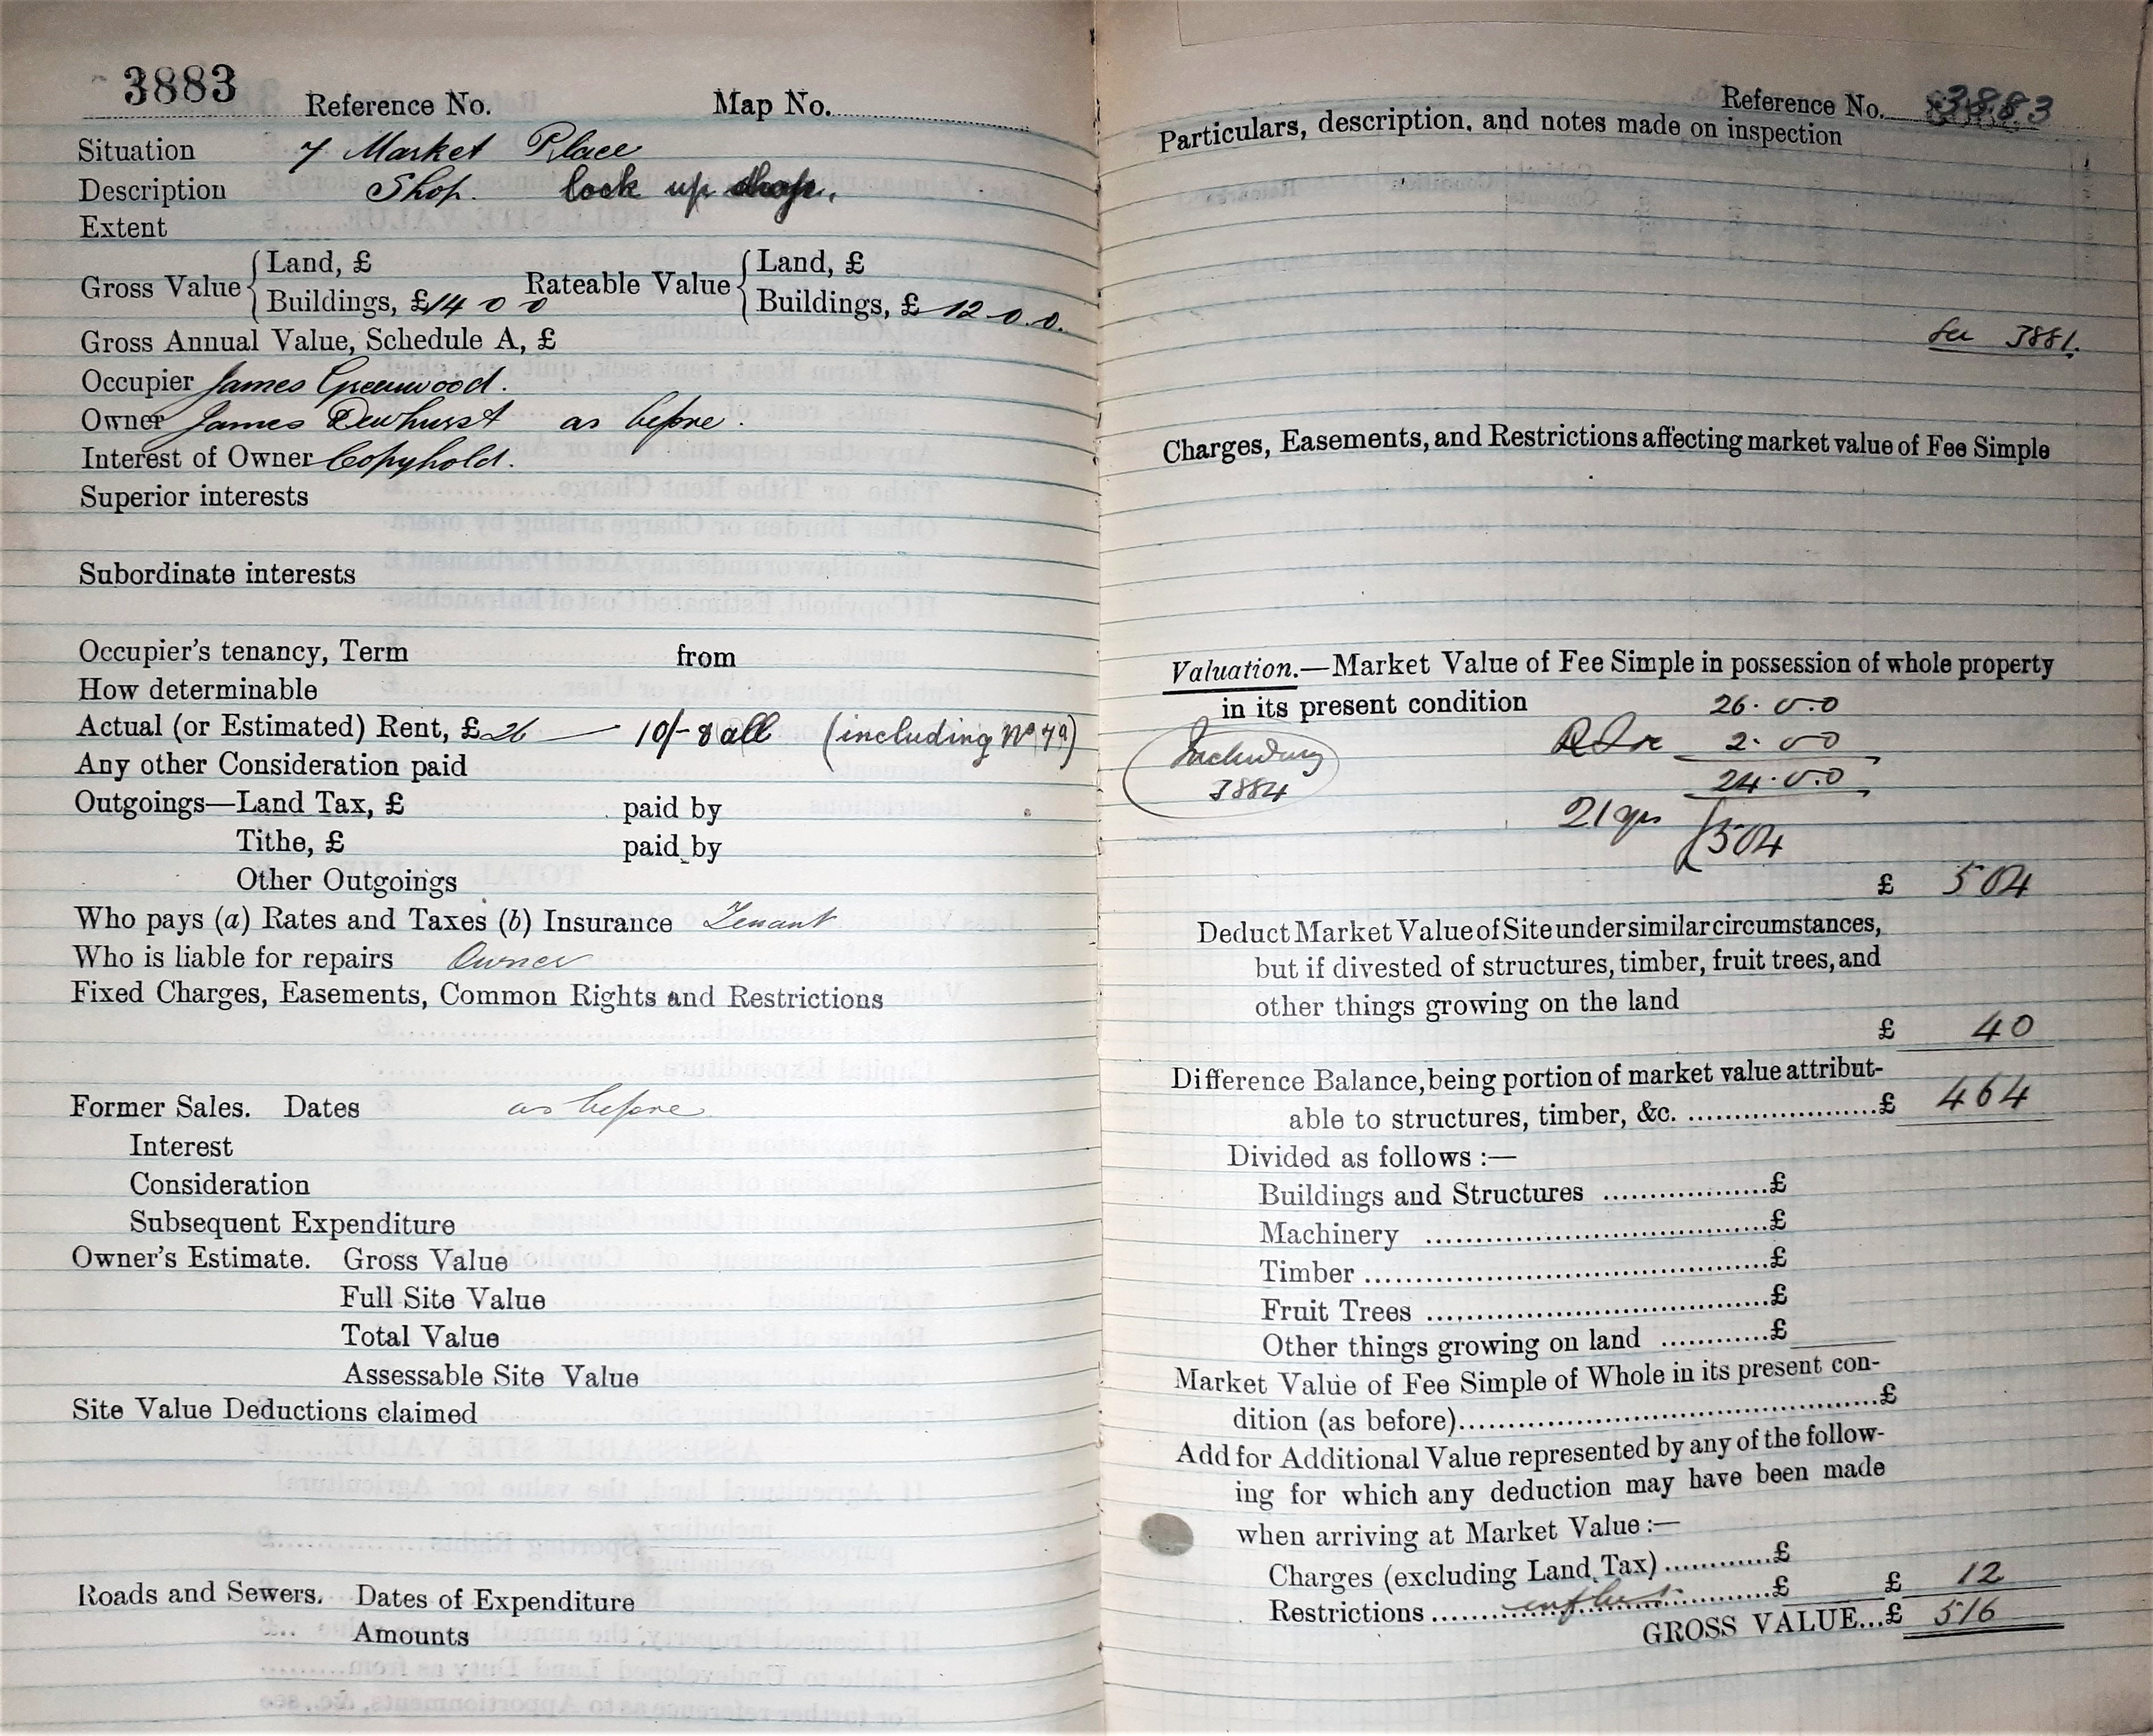 3883 Reference No. Map No.
Situation 7 Market Place
Description Shop. lock up shop.
Extent
Gross Value { Land, £ Rateable Value { Land, £
Buildings, £14 0 0 Buildings, £ 12 . 0 . 0.
Gross Annual Value, Schedule A, £
Occupier James Greenwood.
Owner James Dewhurst as before.
Interest of Owner Copyhold.
Superior interests
Subordinate interests
Occupier's tenancy, Term from
How determinable
Actual (or Estimated) Rent, £ 26 — 10/- 8 all (including No 79)
Any other Consideration paid
Outgoings—Land Tax, £ paid by
Tithe, £ paid by
Other Outgoings
Who pays (a) Rates and Taxes (b) Insurance Tenant
Who is liable for repairs Owner
Fixed Charges, Easements, Common Rights and Restrictions
Former Sales. Dates as before
Interest
Consideration
Subsequent Expenditure
Owner's Estimate. Gross Value
Full Site Value
Total Value
Assessable Site Value
Site Value Deductions claimed
Roads and Sewers. Dates of Expenditure
Amounts
Reference No. 3883
Particulars, description, and notes made on inspection
See 3881.
Charges, Easements, and Restrictions affecting market value of Fee Simple
Valuation.—Market Value of Fee Simple in possession of whole property
in its present condition 26 . 0 . 0
Including 3884
2 . 0 0
24 . 0 . 0
21 yrs 504
£ 504
Deduct Market Value of Site under similar circumstances,
but if divested of structures, timber, fruit trees, and
other things growing on the land
£ 40
Difference Balance, being portion of market value attribut-
able to structures, timber, &c. ....................£ 464
Divided as follows :—
Buildings and Structures ..................£
Machinery ..................£
Timber ..................£
Fruit Trees ..................£
Other things growing on land ............£
Market Value of Fee Simple of Whole in its present con-
dition (as before)..................£
Add for Additional Value represented by any of the follow-
ing for which any deduction may have been made
when arriving at Market Value :—
Charges (excluding Land Tax) ............£
Restrictions ..................£ £ 12
GROSS VALUE...£ 516